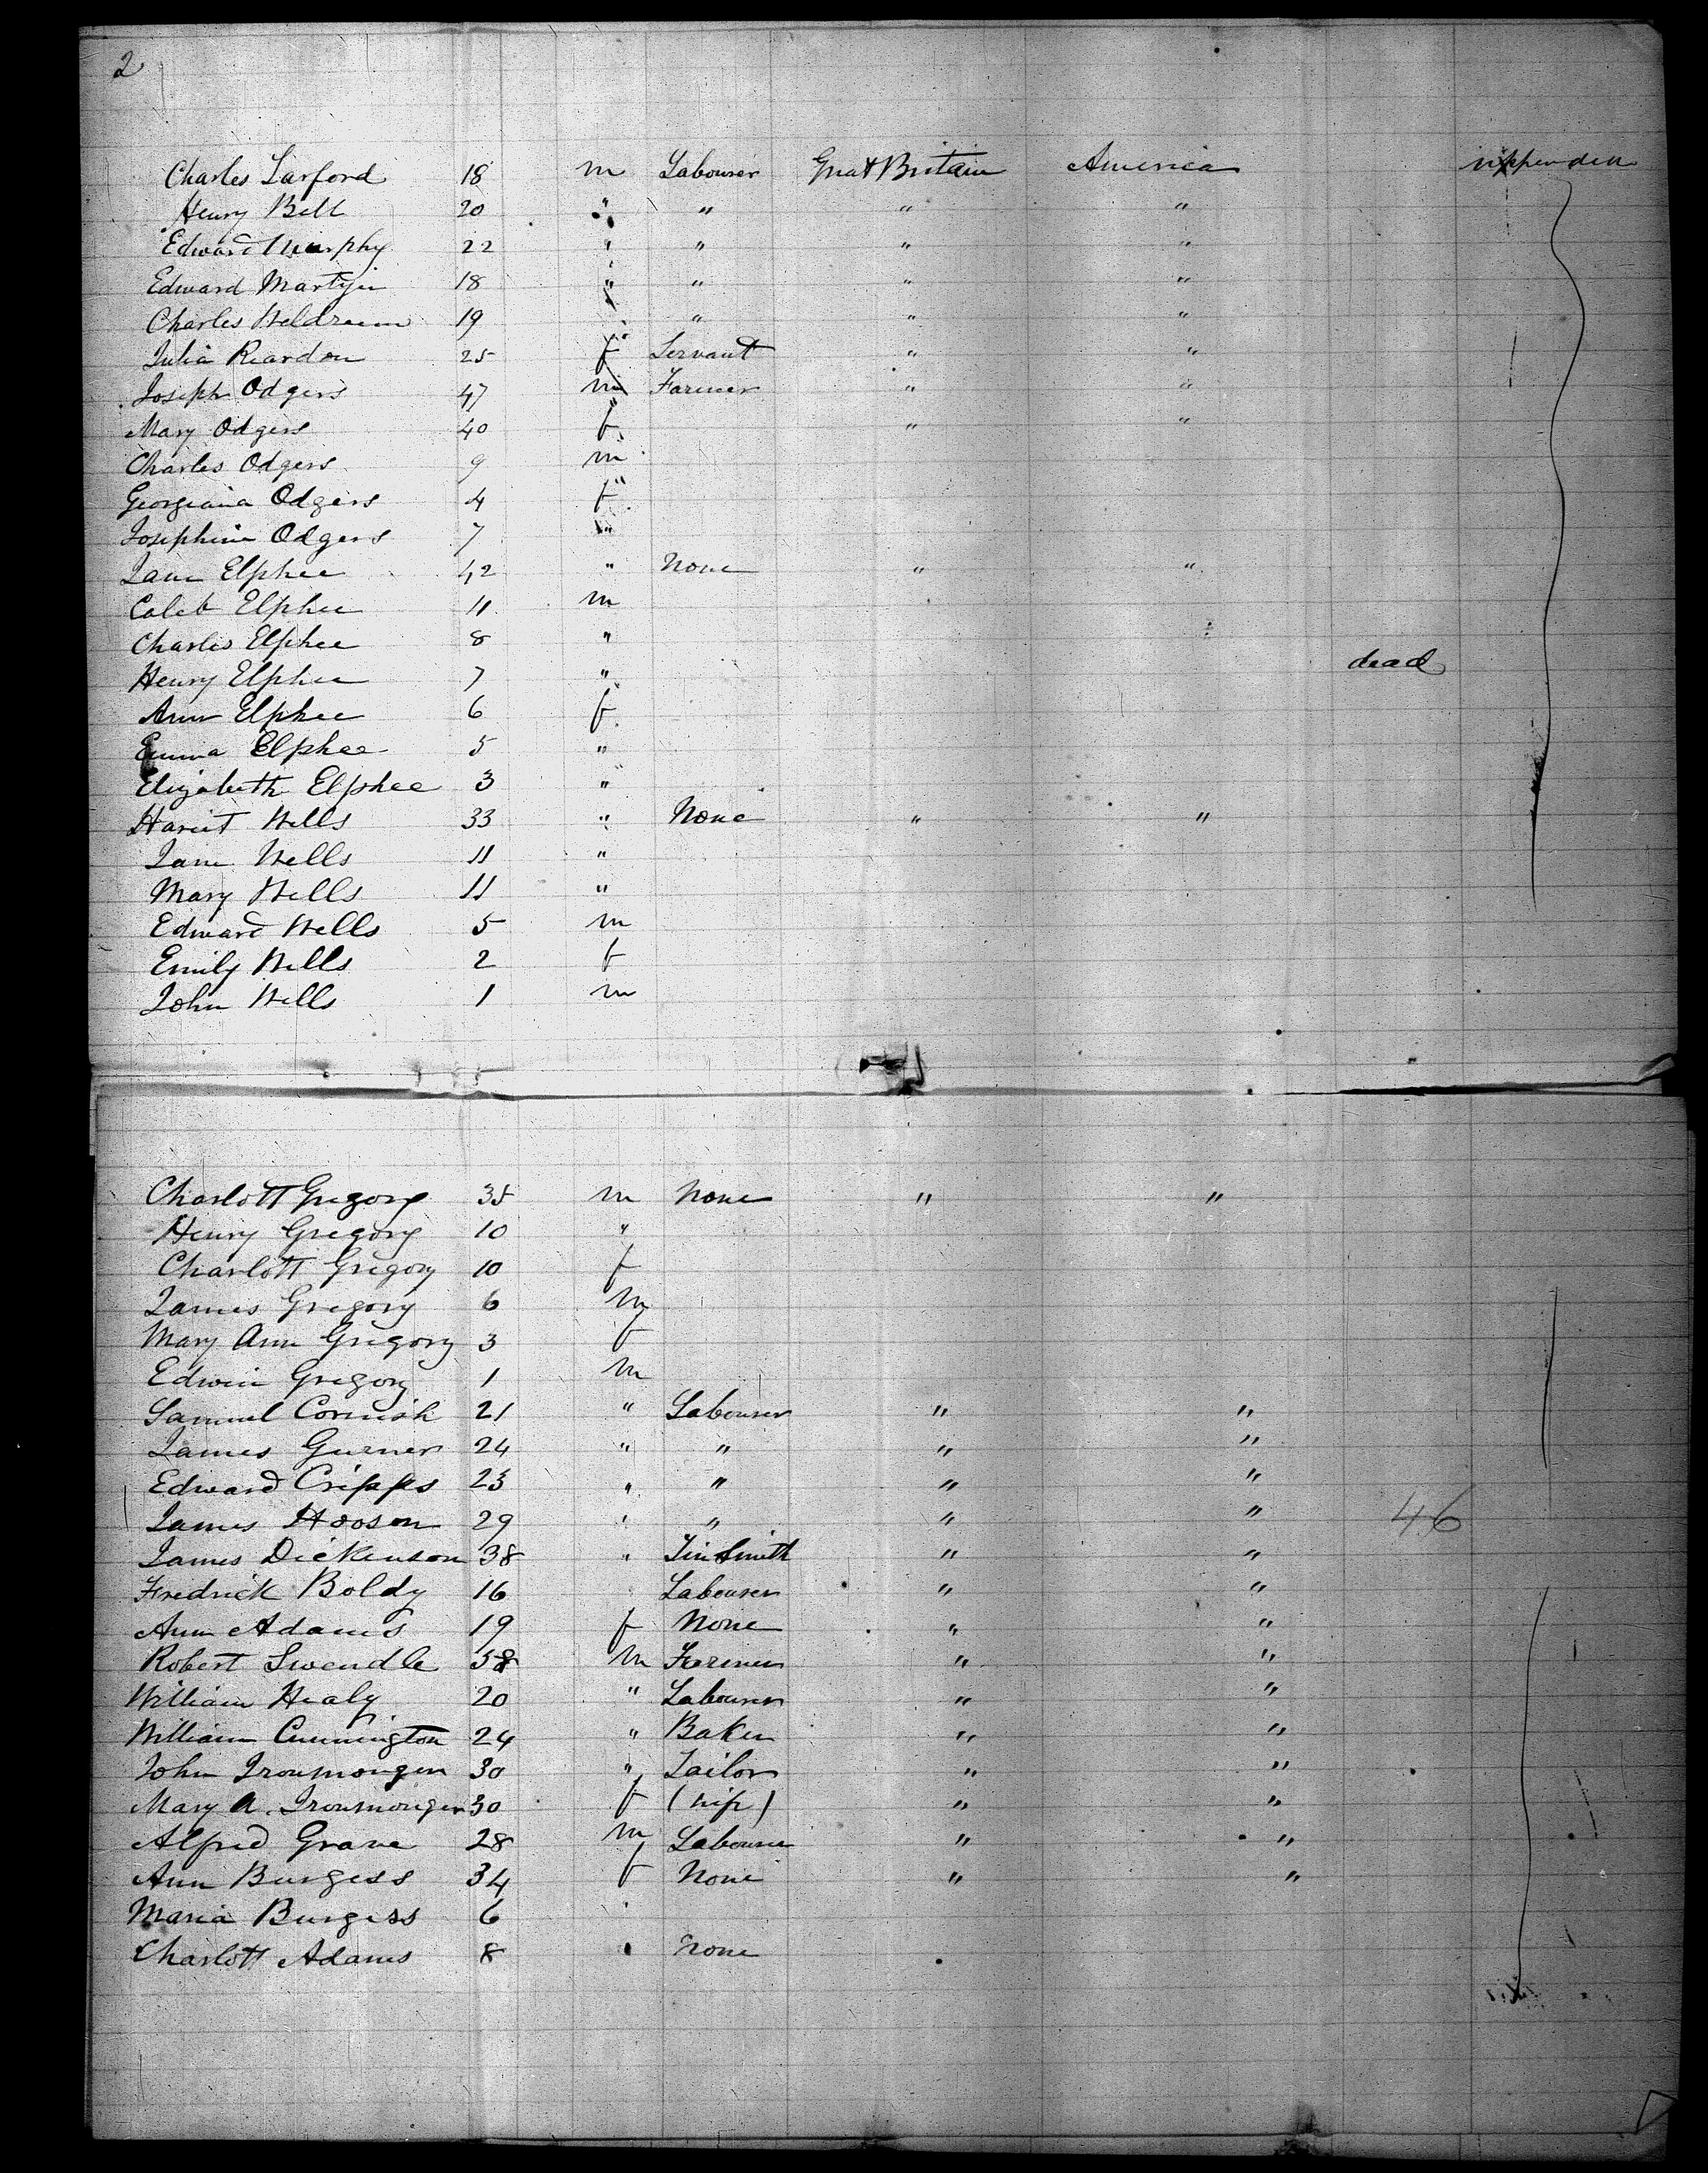 2
Charles Larford 18 m Labourer Great Britain America
Henry Bell 20 " " " "
Edward Murphy 22 " " " "
Edward Martyn 18 " " " "
Charles 19 " " " "
Julia Reardon 25 f Servant " "
Joseph Odgers 47 m Farmer " "
Mary Odgers 40 f " "
Charles Odgers 9 m
Georgiana Odgers 4 f
Josephine Odgers 7 "
Jane Elphee 42 " None " "
Caleb Elphee 11 m
Charles Elphee 8 "
Henry Elphee 7 " dead
Ann Elphee 6 f
Emma Elphee 5 "
Elizabeth Elphee 3 "
Hariet Wells 33 " None " "
Jane Wells 11 "
Mary Wells 11 "
Edward Wells 5 m
Emily Wells 2 f
John Wells 1 m
Charlott Gregory 35 m None " "
Henry Gregory 10 "
Charlott Gregory 10 f
James Gregory 6 m
Mary Ann Gregory 3 f
Edwin Gregory 1 m
Samuel Cornish 21 " Labourer " "
James Gurner 24 " " " "
Edward Cripps 23 " " " "
James Hooson 29 " " " " 46
James Dickenson 38 " Tin Smith " "
Fredrick Boldy 16 Labourer " "
Ann Adams 19 f None " "
Robert Swendle 38 m Farmer " "
William Healy 20 " Labourer " "
William Cunnington 24 " Baker " "
John Ironmonger 30 " Tailor " "
Mary A. Ironmonger 30 f (wife) " "
Alfred Grave 28 m Labourer " "
Ann Burgess 34 f None " "
Maria Burgess 6 "
Charlott Adams 8 " None